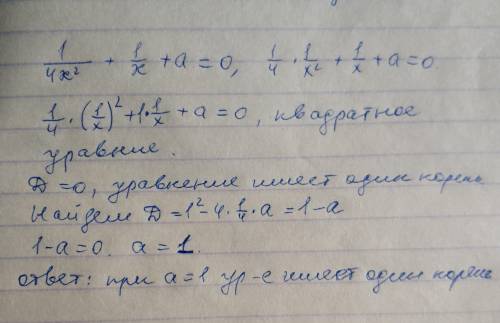 1/4x² + 1/x + a = 0, 1/4 · 1/x² + 1/x + a = 0
1/4 · (1/x)² + 1 · 1/x + a = 0, квадратное
уравние.
D = 0, уравнение имеет один корень
Найдем D = 1² - 4 · 1/4 · a = 1 - a
1 - a = 0. a = 1.
ответ: при a = 1 ур-е имеет один корень